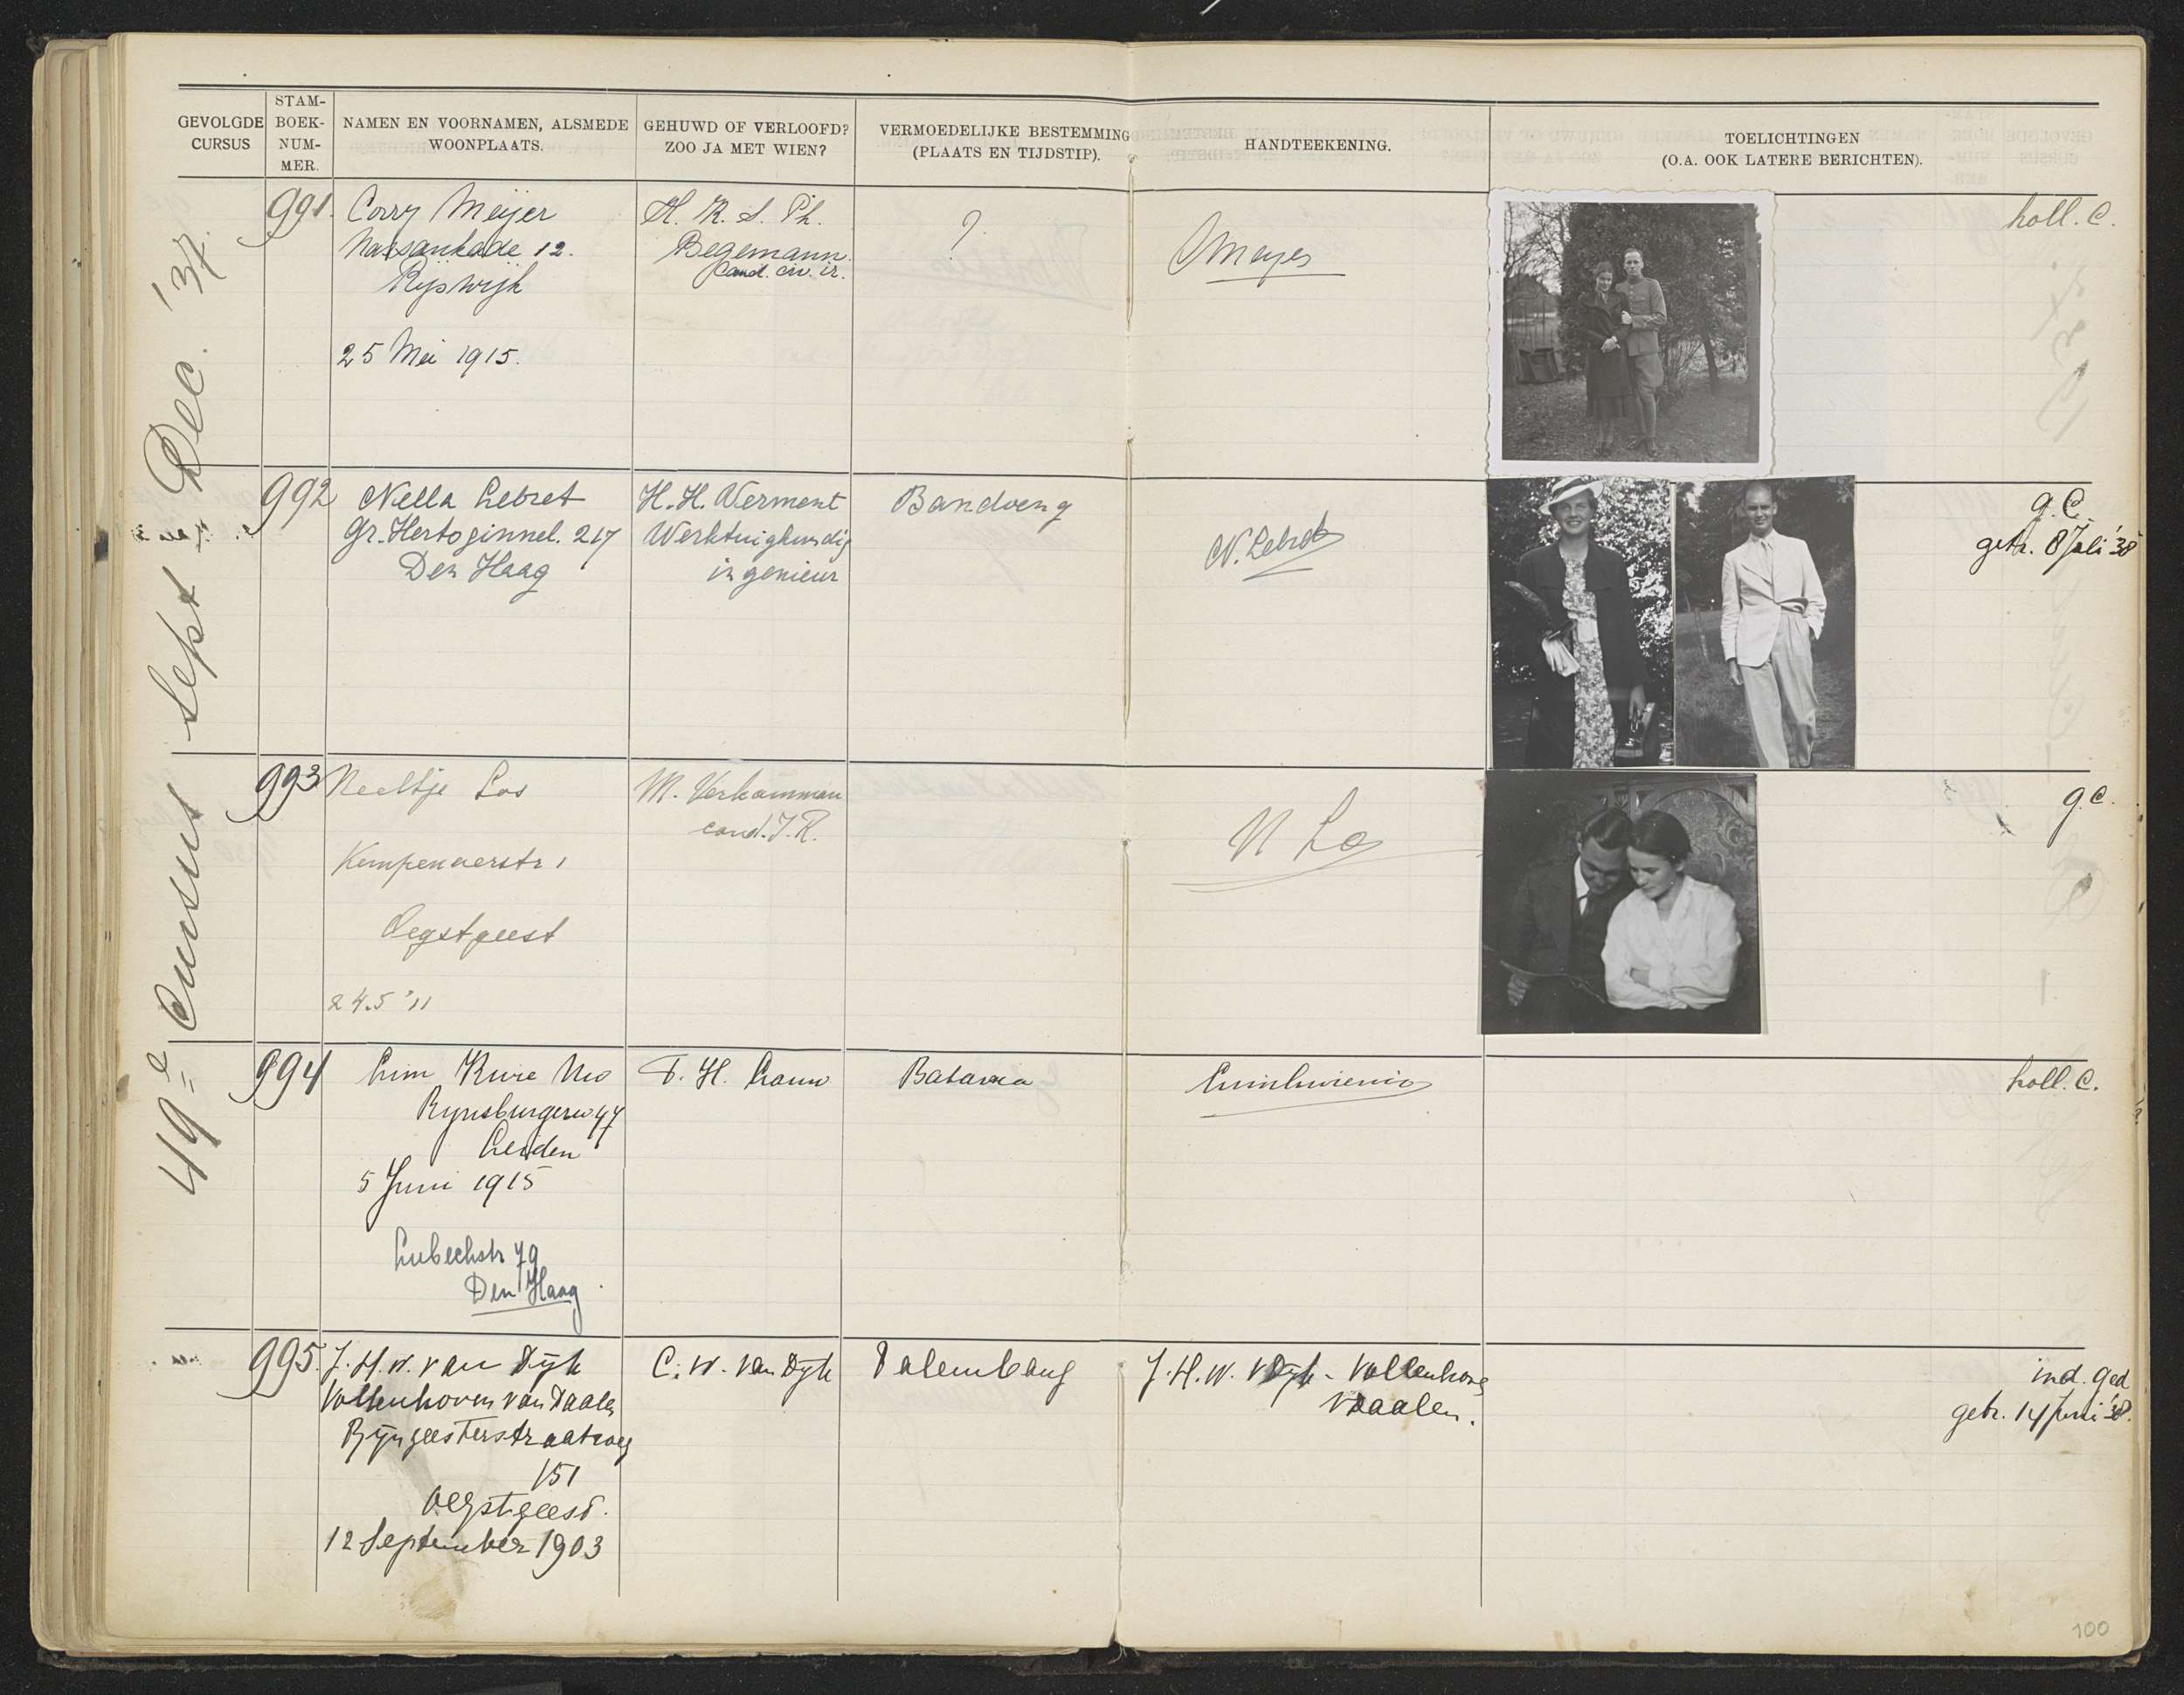 GEVOLGDE CURSUS
STAM-
BOEK-
NUM-
MER.
NAMEN EN VOORNAMEN, ALSMEDE
WOONPLAATS.
GEHUWD OF VERLOOFD?
ZOO JA MET WIEN?
VERMOEDELIJKE BESTEMMING
(PLAATS EN TIJDSTIP).
HANDTEEKENING.
TOELICHTINGEN
(O.A. OOK LATERE BERICHTEN).
49e Cursus Sept - Dec. '37.
991.
Corry Meijer
Nassaukade 12.
Rijswijk
25 Mei 1915.
H. K. S. Ph.
Begemann.
Cand. civ. ir.
?
CMeyer
holl. C.
992
Nella Lebret
Gr. Hertoginnel. 217
Den Haag
H. H. Werment
Werktuigkundig
ingenieur
Bandoeng
N. Lebret
g. C.
getr. 8 Juli '38
993
Neeltje Los
Kempenaerstr 1
Oegstgeest
24.5 '11
M. Verkamman
cand. I. R.
N Los
g.C.
994
Lim Kwie Nio
Rynsburgerw 47
Leiden
5 Juni 1915
Lubeckstr 79
Den Haag.
T. H. Lauw
Batavia
Limkwienio
holl. C.
995.
J. H. W. van Dijk
Vollenhoven van Daalen
Rijngeesterstraatweg
151
Oegstgeest.
12 September 1903
C. W. van Dijk
Palembang
J. H. W. v Dijk - Vollenhoven
v Daalen.
ind. ged
getr. 14 Juni '38.
100